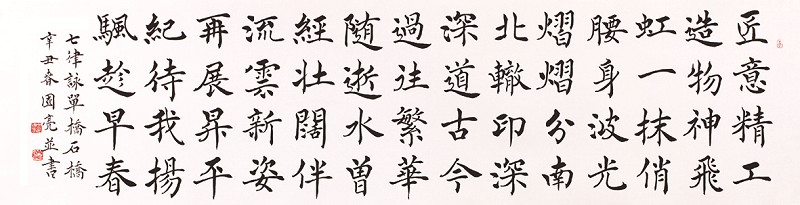 匠意精工
造物神飛
虹一抹俏
腰身波光
熠熠分南
北轍印深
深道古今
過往繁華
随逝水曾
經壯闊伴
流雲新姿
再展昇平
紀待我揚
颿趁早春
七律詠單橋石橋
辛丑春國亮並書